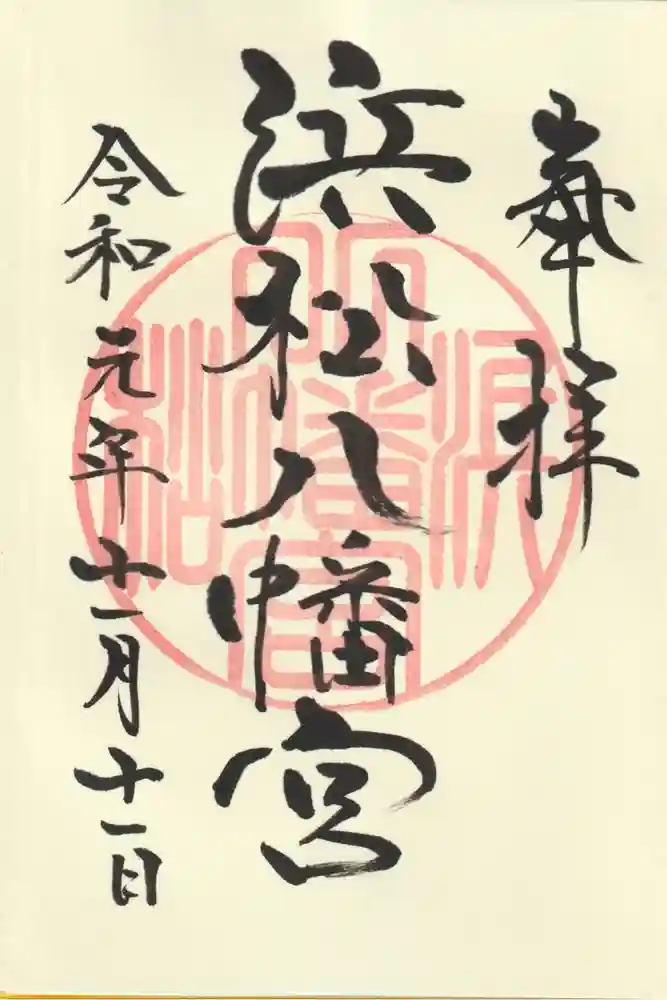 奉拝
浜松八幡宮
令和元年十一月十一日
浜松八幡宮